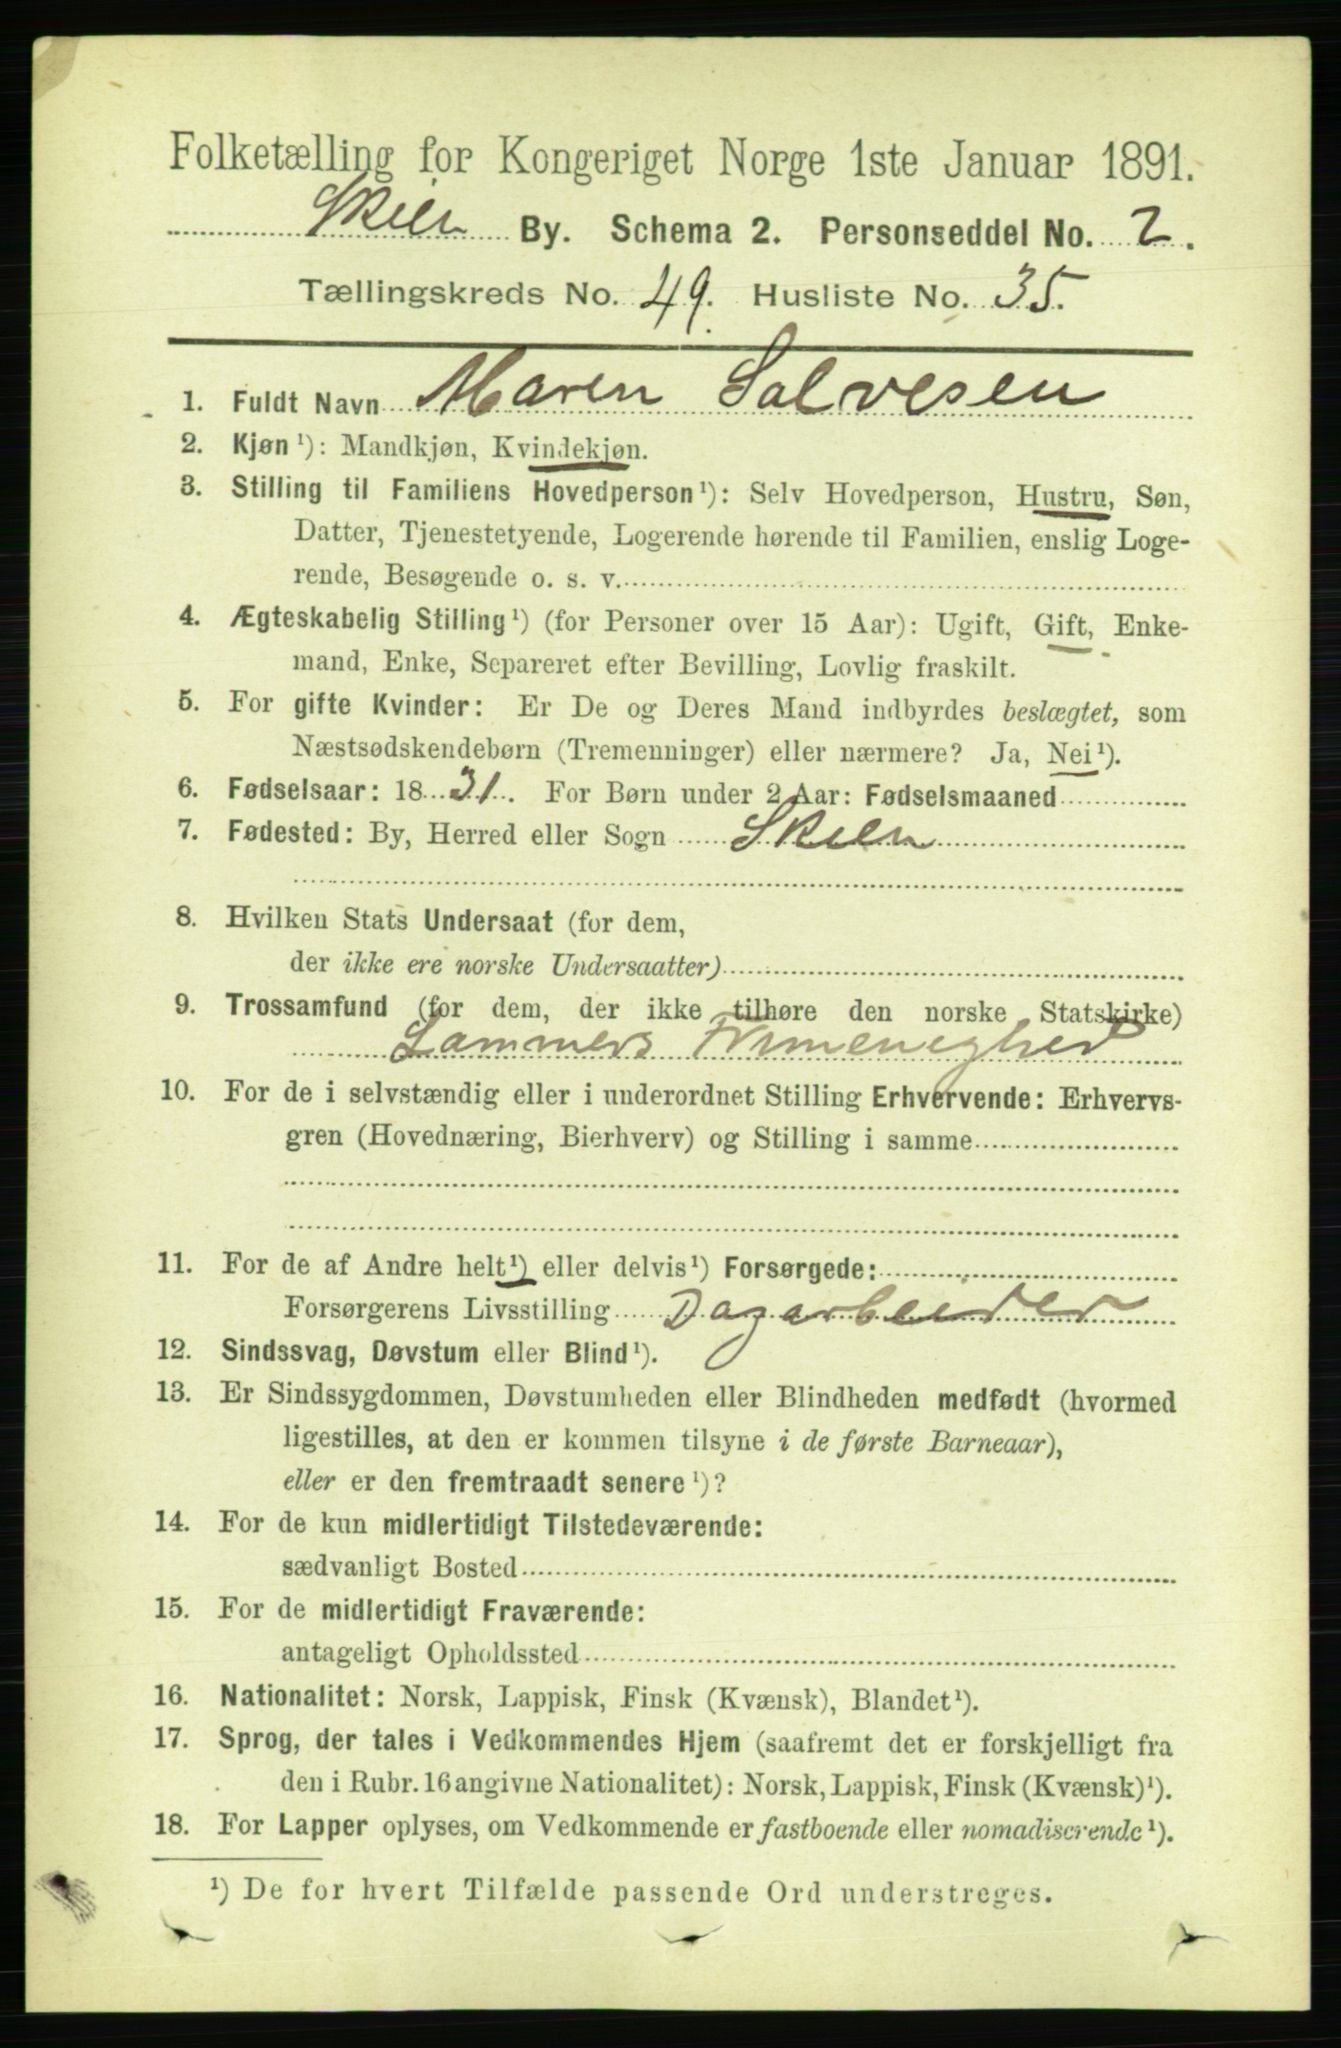 Folketælling for Kongeriget Norge 1ste Januar 1891.
Skien By. Schema 2. Personseddel No. 2.
Tællingskreds No. 49. Husliste No. 35.
1. Fuldt Navn Maren Salvesen
2. Kjøn ¹): Mandkjøn, Kvindekjøn.
3. Stilling til Familiens Hovedperson ¹): Selv Hovedperson, Hustru, Søn,
Datter, Tjenestetyende, Logerende hørende til Familien, enslig Loge-
rende, Besøgende o. s. v.
4. Ægteskabelig Stilling ¹) (for Personer over 15 Aar): Ugift, Gift, Enke-
mand, Enke, Separeret efter Bevilling, Lovlig fraskilt.
5. For gifte Kvinder: Er De og Deres Mand indbyrdes beslægtet, som
Næstsødskendebørn (Tremenninger) eller nærmere? Ja, Nei ¹).
6. Fødselsaar: 1831. For Børn under 2 Aar: Fødselsmaaned
7. Fødested: By, Herred eller Sogn Skien
8. Hvilken Stats Undersaat (for dem,
der ikke ere norske Undersaatter)
9. Trossamfund (for dem, der ikke tilhøre den norske Statskirke)
Lammers
10. For de i selvstændig eller i underordnet Stilling Erhvervende: Erhvervs-
gren (Hovednæring, Bierhverv) og Stilling i samme
11. For de af Andre helt ¹) eller delvis ¹) Forsørgede:
Forsørgerens Livsstilling Dagarbeider
12. Sindssvag, Døvstum eller Blind ¹).
13. Er Sindssygdommen, Døvstumheden eller Blindheden medfødt (hvormed
ligestilles, at den er kommen tilsyne i de første Barneaar),
eller er den fremtraadt senere ¹)?
14. For de kun midlertidigt Tilstedeværende:
sædvanligt Bosted
15. For de midlertidigt Fraværende:
antageligt Opholdssted
16. Nationalitet: Norsk, Lappisk, Finsk (Kvænsk), Blandet ¹).
17. Sprog, der tales i Vedkommendes Hjem (saafremt det er forskjelligt fra
den i Rubr. 16 angivne Nationalitet): Norsk, Lappisk, Finsk (Kvænsk) ¹).
18. For Lapper oplyses, om Vedkommende er fastboende eller nomadiserende ¹).
¹) De for hvert Tilfælde passende Ord understreges.